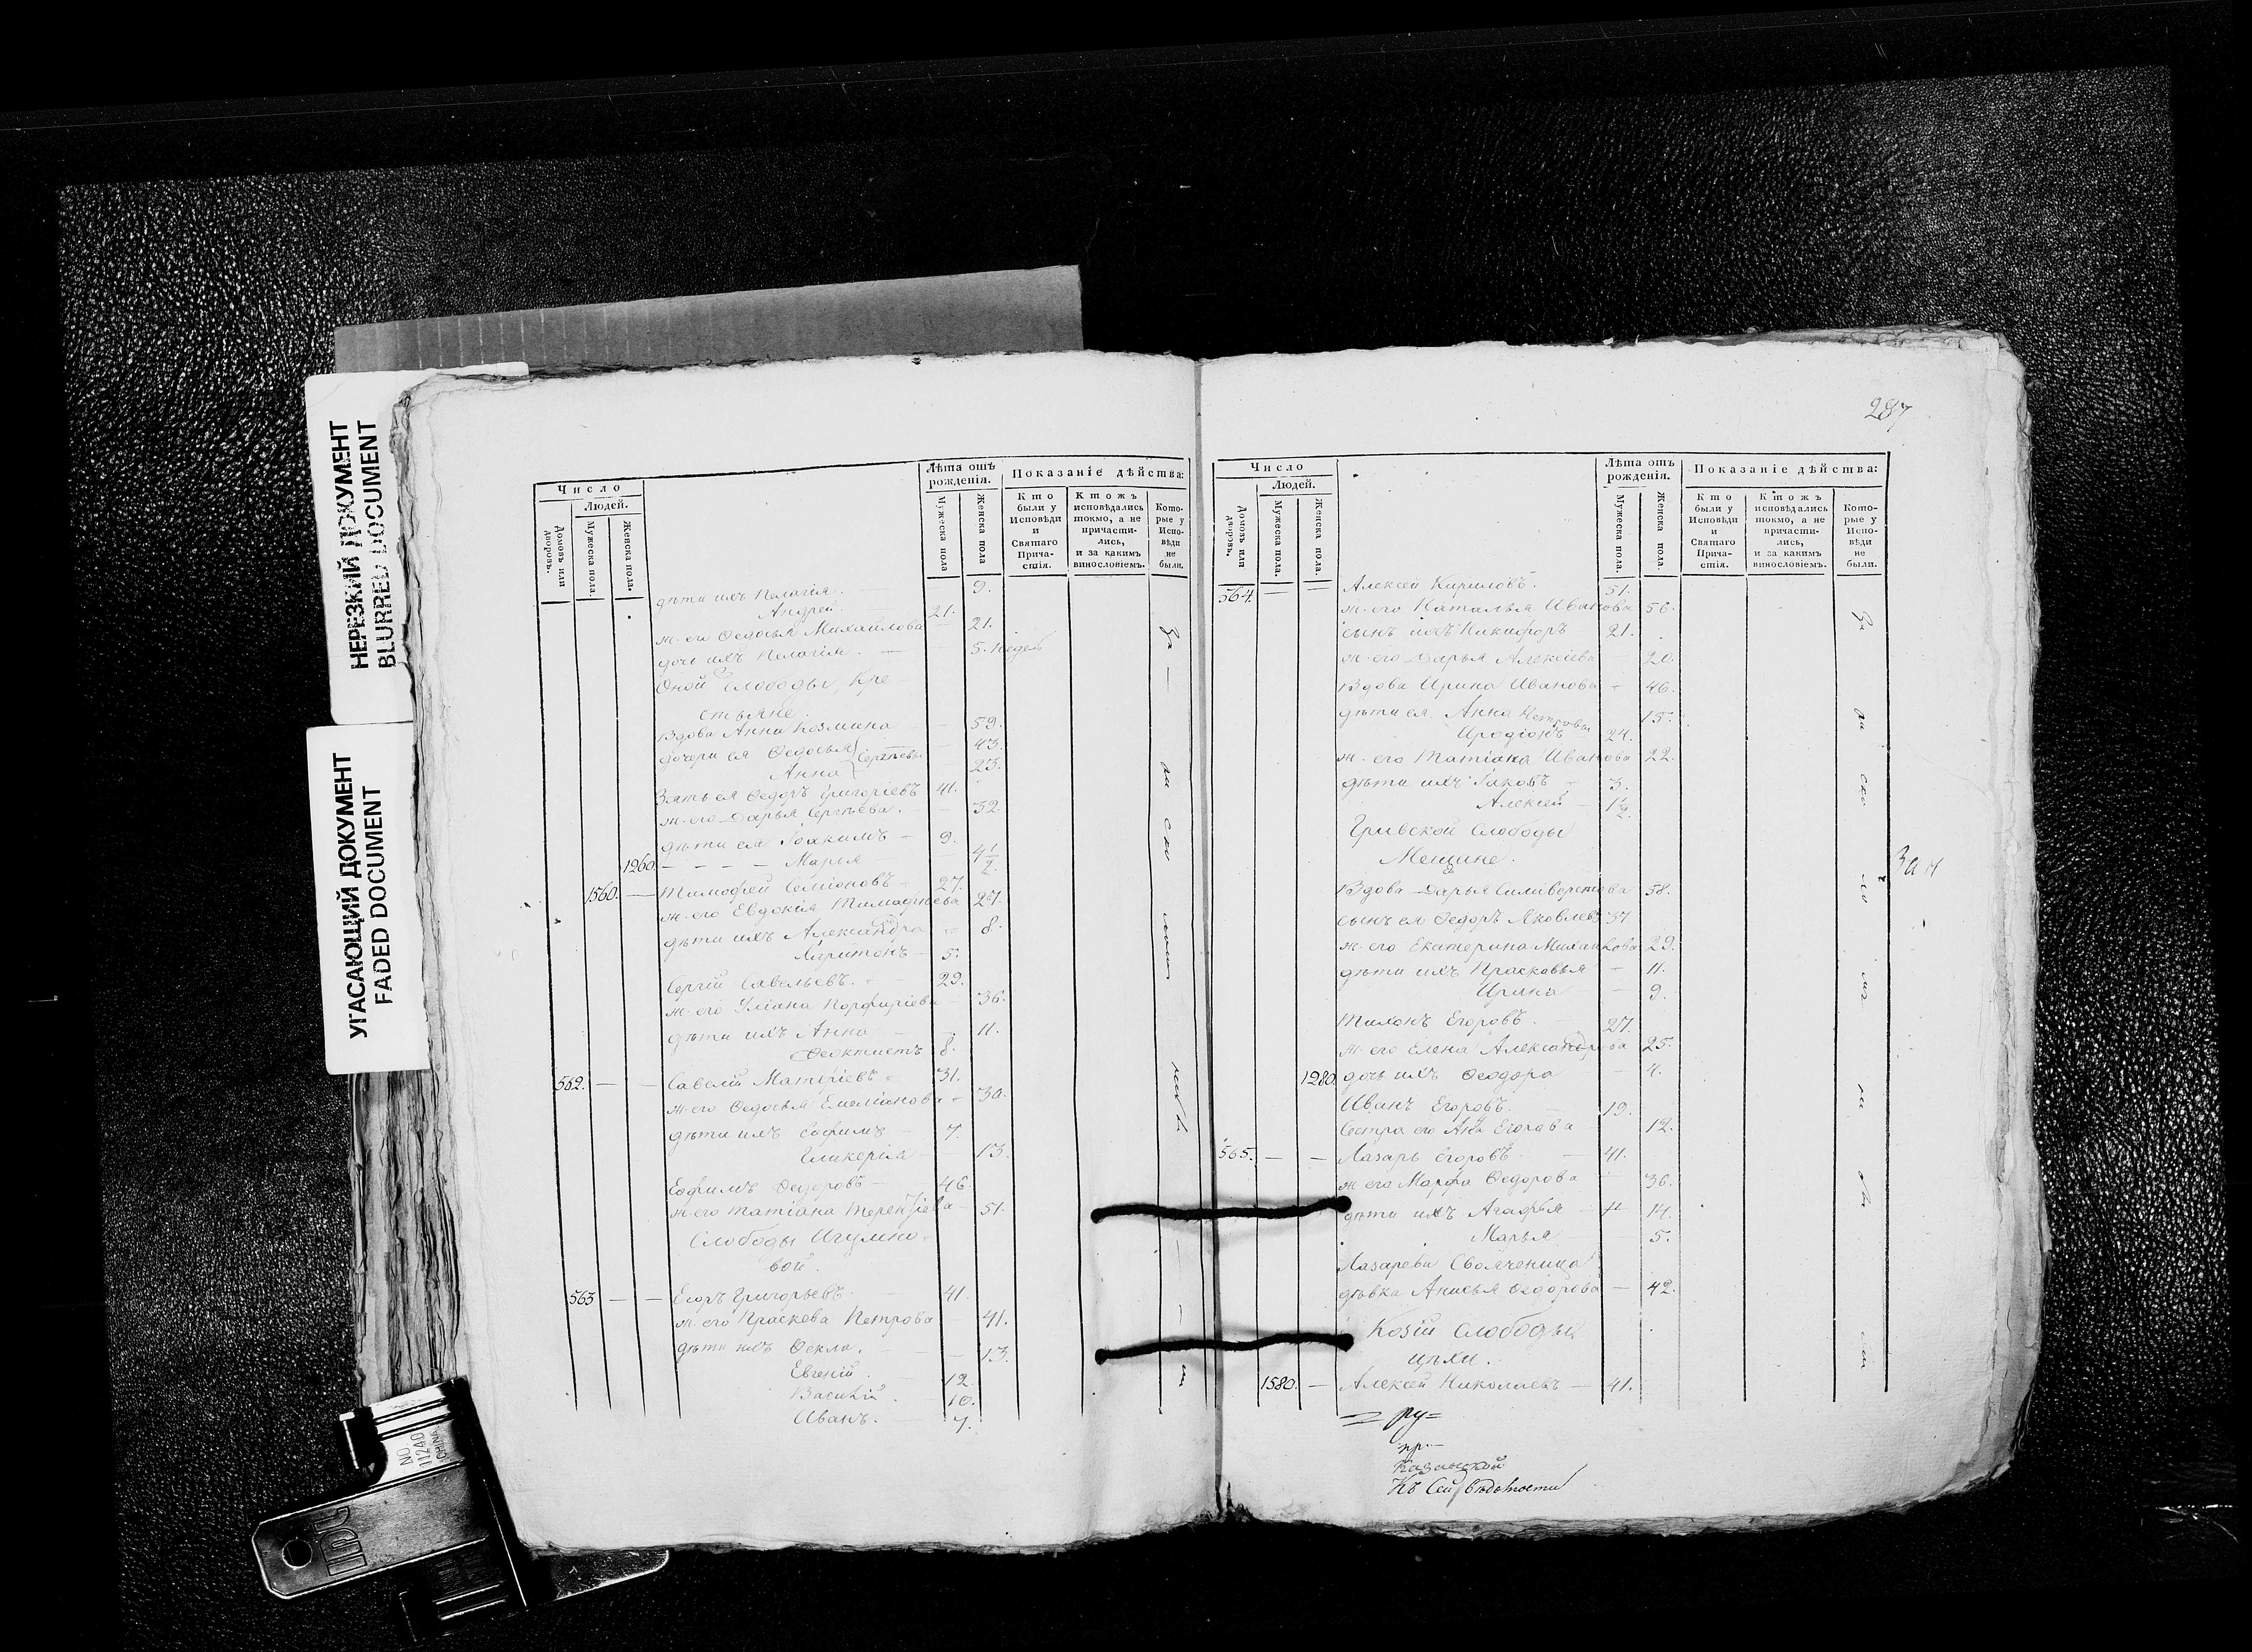 НЕРЕЗКИЙ ДОКУМЕНТ
BLURRED DOCUMENT
УГАСАЮЩИЙ ДОКУМЕНТ
FADED DOCUMENT
NO. 11240
CHINA
Число
Людей.
Домовъ или дворовъ.
Мужеска пола.
Женска пола.
Лѣта отъ рожденія.
Мужеска пола
Женска пола
Показаніе дѣйства:
Кто были у Исповѣди и Святаго Прича-стія.
Ктожъ исповѣдались токмо, а не причасти-лись, и за какимъ винословіемъ.
Кото-рые у Испо-вѣди не были.
дѣти ихъ Пелагія. 9.
Андрей 21.
ж. его Федосья Михайлова 21.
дочь ихъ Пелагія. 5. недель
Оной Слободы, Кре-
стьяне
Вдова Анна Козмина 59.
дочери ея Федосья Сергѣевы 43.
Анна 23.
Зять ея Федоръ Григорьевъ 41.
ж. его Дарья Сергѣева. 32
дѣти ея Іоакимъ 9.
1260. Марья 4 1/2
1560. Тимофей Семіоновъ 27.
ж. его Евдокія Тимофѣева 27.
дѣти ихъ Александра 8.
Харитонъ 5.
Сергій Савельевъ. 29.
ж. его Уліана Порфиріева 36.
дѣти ихъ Анна 11.
Феоктистъ 8.
562. Савелій 31.
ж. его Федосья Емеліанова 30.
дѣти ихъ Ефимъ 7.
Гликерія 13.
Ефимъ Федоровъ 46.
ж. его Татіана Терентіева 51.
Слободы Игумно-
вой.
563 Егоръ Григорьевъ 41.
ж. его Праскева Петрова 41.
дѣти ихъ Фекла. 13.
Евгеній 12.
Василій 10.
Иванъ. 7.
287
Число
Людей.
Домовъ или дворовъ.
Мужеска пола.
Женска пола.
Лѣта отъ рожденія.
Мужеска пола.
Женска пола.
Показаніе дѣйства:
Кто были у Исповѣди и Святаго Прича-стія.
Ктожъ исповѣдались токмо, а не причасти-лись, и за какимъ винословіемъ.
Кото-рые у Испо-вѣди не были.
564. Алексей Кириловъ. 51.
ж. его Наталья Иванова 56.
сынъ ихъ Никифоръ 21.
ж. его Дарья Алексіева 20.
Вдова Ирина Иванова 46.
дѣти ея Анна Петровы 15.
Иродіонъ 24.
ж. его Татіана Иванова 22.
дѣти ихъ Іаковъ 3.
Алексей 1 1/2
Гривской Слободы
Мещане.
Вдова Дарья Силиверстова 58.
сынъ ея Федоръ Яковлевъ 37
ж. его Екатерина Михайлова 29.
дѣти ихъ Прасковья 11.
Ирина 9.
Тихонъ Егоровъ. 27.
ж. его Елена Александрова 25.
1280. дочь ихъ Феодора 4.
Иванъ Егоровъ. 19.
Сестра его Анна Егорова 12.
565. Лазарь Егоровъ 41.
ж. его Марфа Федорова 36.
дѣти ихъ Агафья 14.
Марья 5.
Лазарева Своячeница
дѣвка Анисья Федорова 42.
Козій Слободы
цѣхи.
1580. Алексей Николаевъ 41.
ру=
пр.
Казанской
Къ Сей вѣдомости